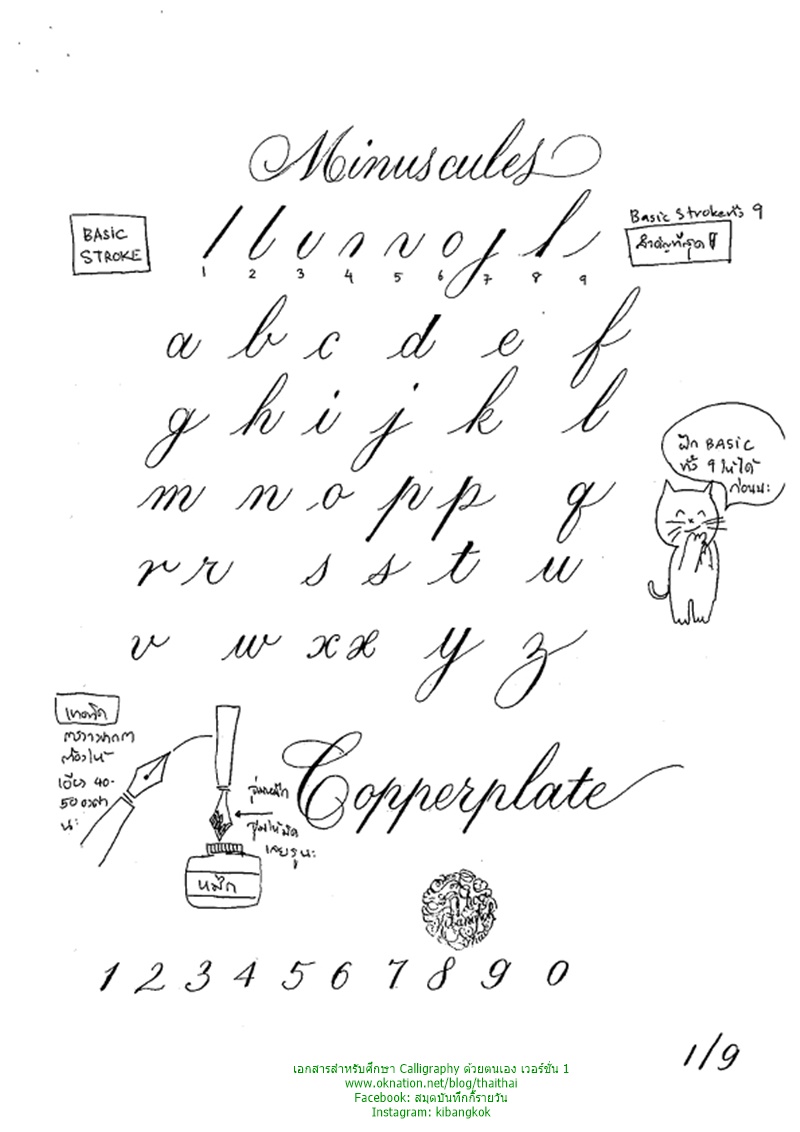 Minuscules
BASIC
STROKE
1 2 3 4 5 6 7 8 9
Basic Strokeทั้ง 9
สำคัญที่สุด!!
a b c d e f
g h i j k l
m n o p p q
r r s s t u
v w x x y z
ฝึก BASIC
ทั้ง 9 ให้ได้
ก่อนนะ
เทคนิค
ต้องให้
เอียง 40-
50 องศา
นะ
จุ่มหมึก
จุ่มให้มิด
เลยรูนะ
หมึก
Copperplate
1 2 3 4 5 6 7 8 9 0
1/9
เอกสารสำหรับศึกษา Calligraphy ด้วยตนเอง เวอร์ชั่น 1
www.oknation.net/blog/thaithai
Facebook: สมุดบันทึกกี้รายวัน
Instagram: kibangkok